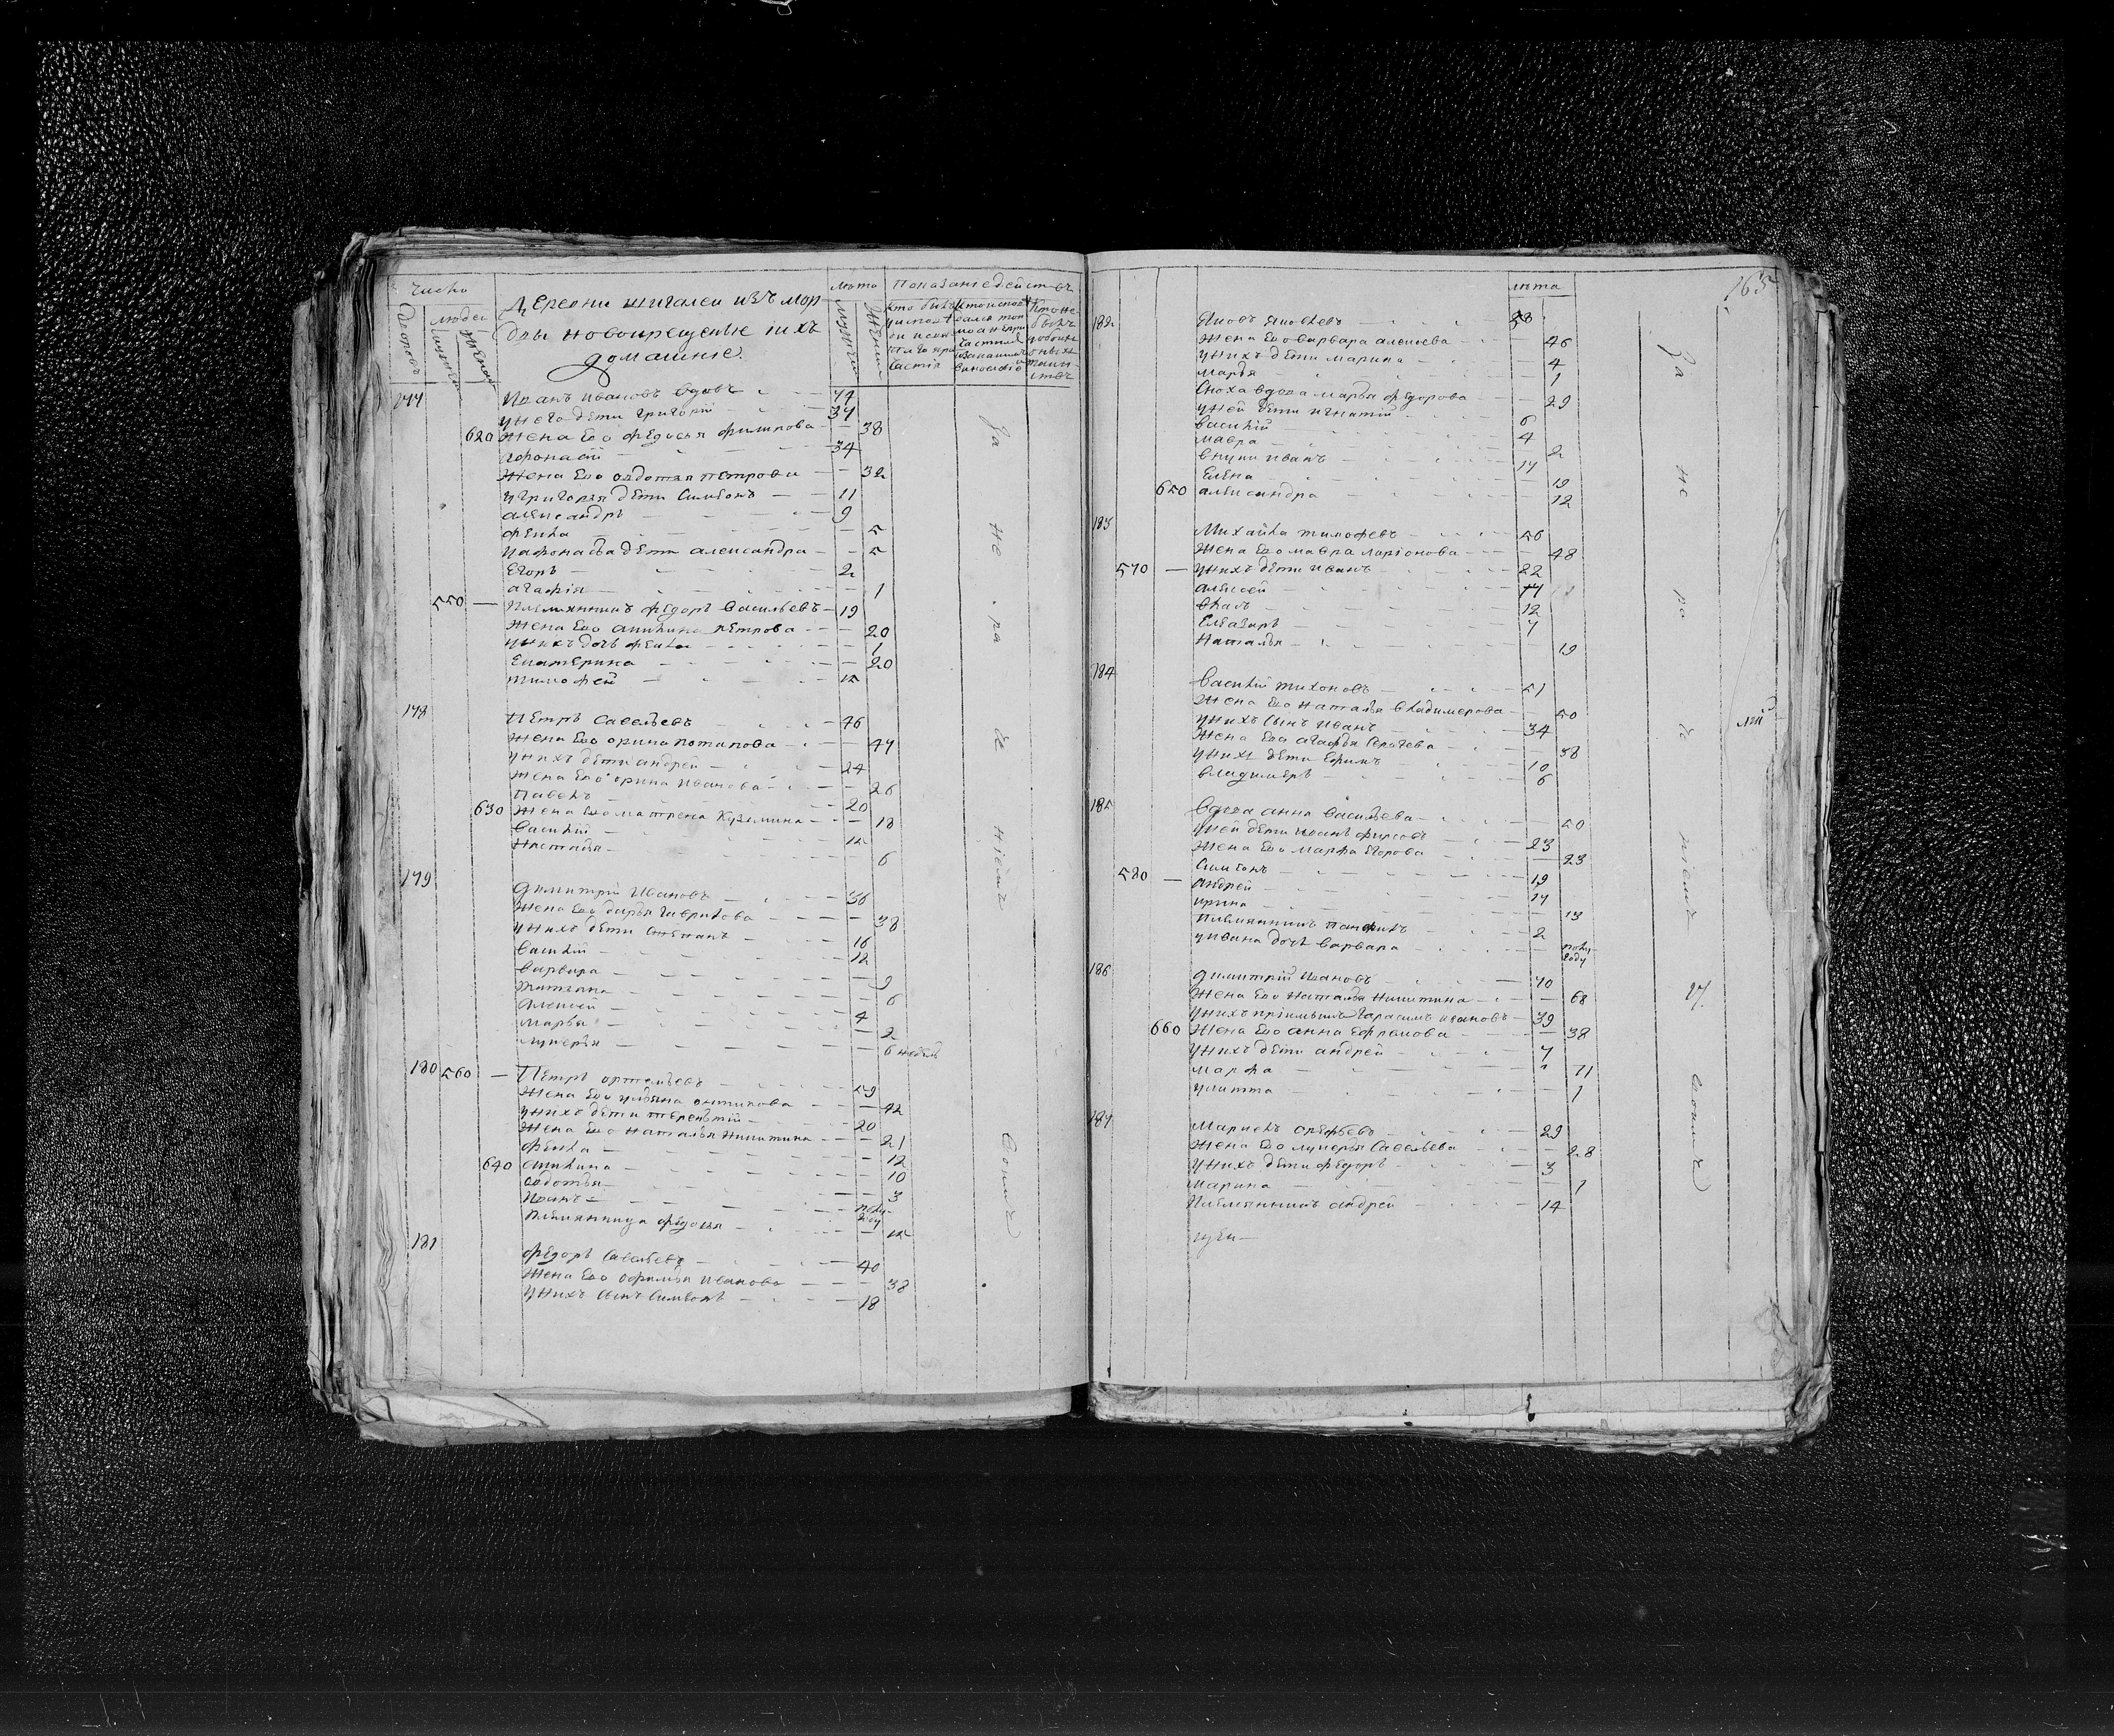 число
Дворовъ
людей
мужеска
женска
Деревни шигалеи изъ мор
двы новокрещеные iихъ
домашние
лѣта
мужеска
женска
Показание действъ
177 Иванъ Ивановъ вдовъ 77
у него дети Григорiй 37
620 жена ево федосья филипова 38
Афонасiй 34
жена ево овдотья петрова 32
у григорья дети Симеонъ 11
александръ 9
фекла 5
у афонасья дети александра 5
Егоръ 2
агафiя 1
550 Племянникъ федоръ Васильевъ 19
жена ево акилина петрова 20
у нихъ дочь фекла 1
Екатерина 20
тимофей 15
178 Петръ Савельевъ 46
жена ево орина потапова 47
у нихъ дети андрей 24
жена ево орина иванова 26
Павелъ 20
630 жена ево матрена Кузмина 18
Василiй 15
Настасья 6
179 Димитрiй Ивановъ 36
жена ево дарья гаврилова 38
у нихъ дети Степанъ 16
Василiй 12
Варвара 9
татьяна 6
Алексей 4
Марья 2
лукерья 6 недель
180 560 Петръ ортемьевъ 59
жена ево ульяна онтипова 42
у нихъ дети терентiй 20
жена ево наталья никитина 21
фекла 12
640 акилина 10
овдотья 3
Иванъ полу году
Племянница федосья 15
181 федоръ Савельевъ 40
жена ево офимья иванова 38
у нихъ сынъ Симеонъ 18
За не ра де нiемъ Своимъ
165
лѣта
182 Яковъ Яковлевъ 58
жена ево варвара алексеева 46
у нихъ дети марина 4
марья 1
Сноха вдова марья федорова 29
у ней дети игнатiй 6
василiй 4
мавра 2
внуки иванъ 17
Елена 19
650 александра 12
183 Михайла тимофеевъ 56
жена ево мавра ларiонова 48
570 у нихъ дети иванъ 22
алексей 14
власъ 12
Елеазаръ 7
Наталья 19
184 Василiй тихоновъ 51
жена ево наталья владимерова 50
у нихъ сынъ иванъ 34
жена ево агафья Сергеева 38
у нихъ дети Ефимъ 10
владимеръ 6
185 Вдова анна васильева 50
у ней дети иванъ фирсовъ 23
жена ево марфа Егорова 23
Симеонъ 19
580 андрей 17
ирина 13
племянникъ панфилъ 2
у ивана дочь варвара полу году
186 Димитрiй ивановъ 70
жена ево наталья никитина 68
у нихъ прiимышъ гарасимъ ивановъ 39
660 жена ево анна Ефремова 38
у нихъ дети андрей 7
марфа 11
улитта 1
187 Маркелъ орефьевъ 29
жена ево лукерья Савельева 28
у нихъ дети федоръ 3
марина 1
племянникъ андрей 14
За не ра де нiемъ Своимъ